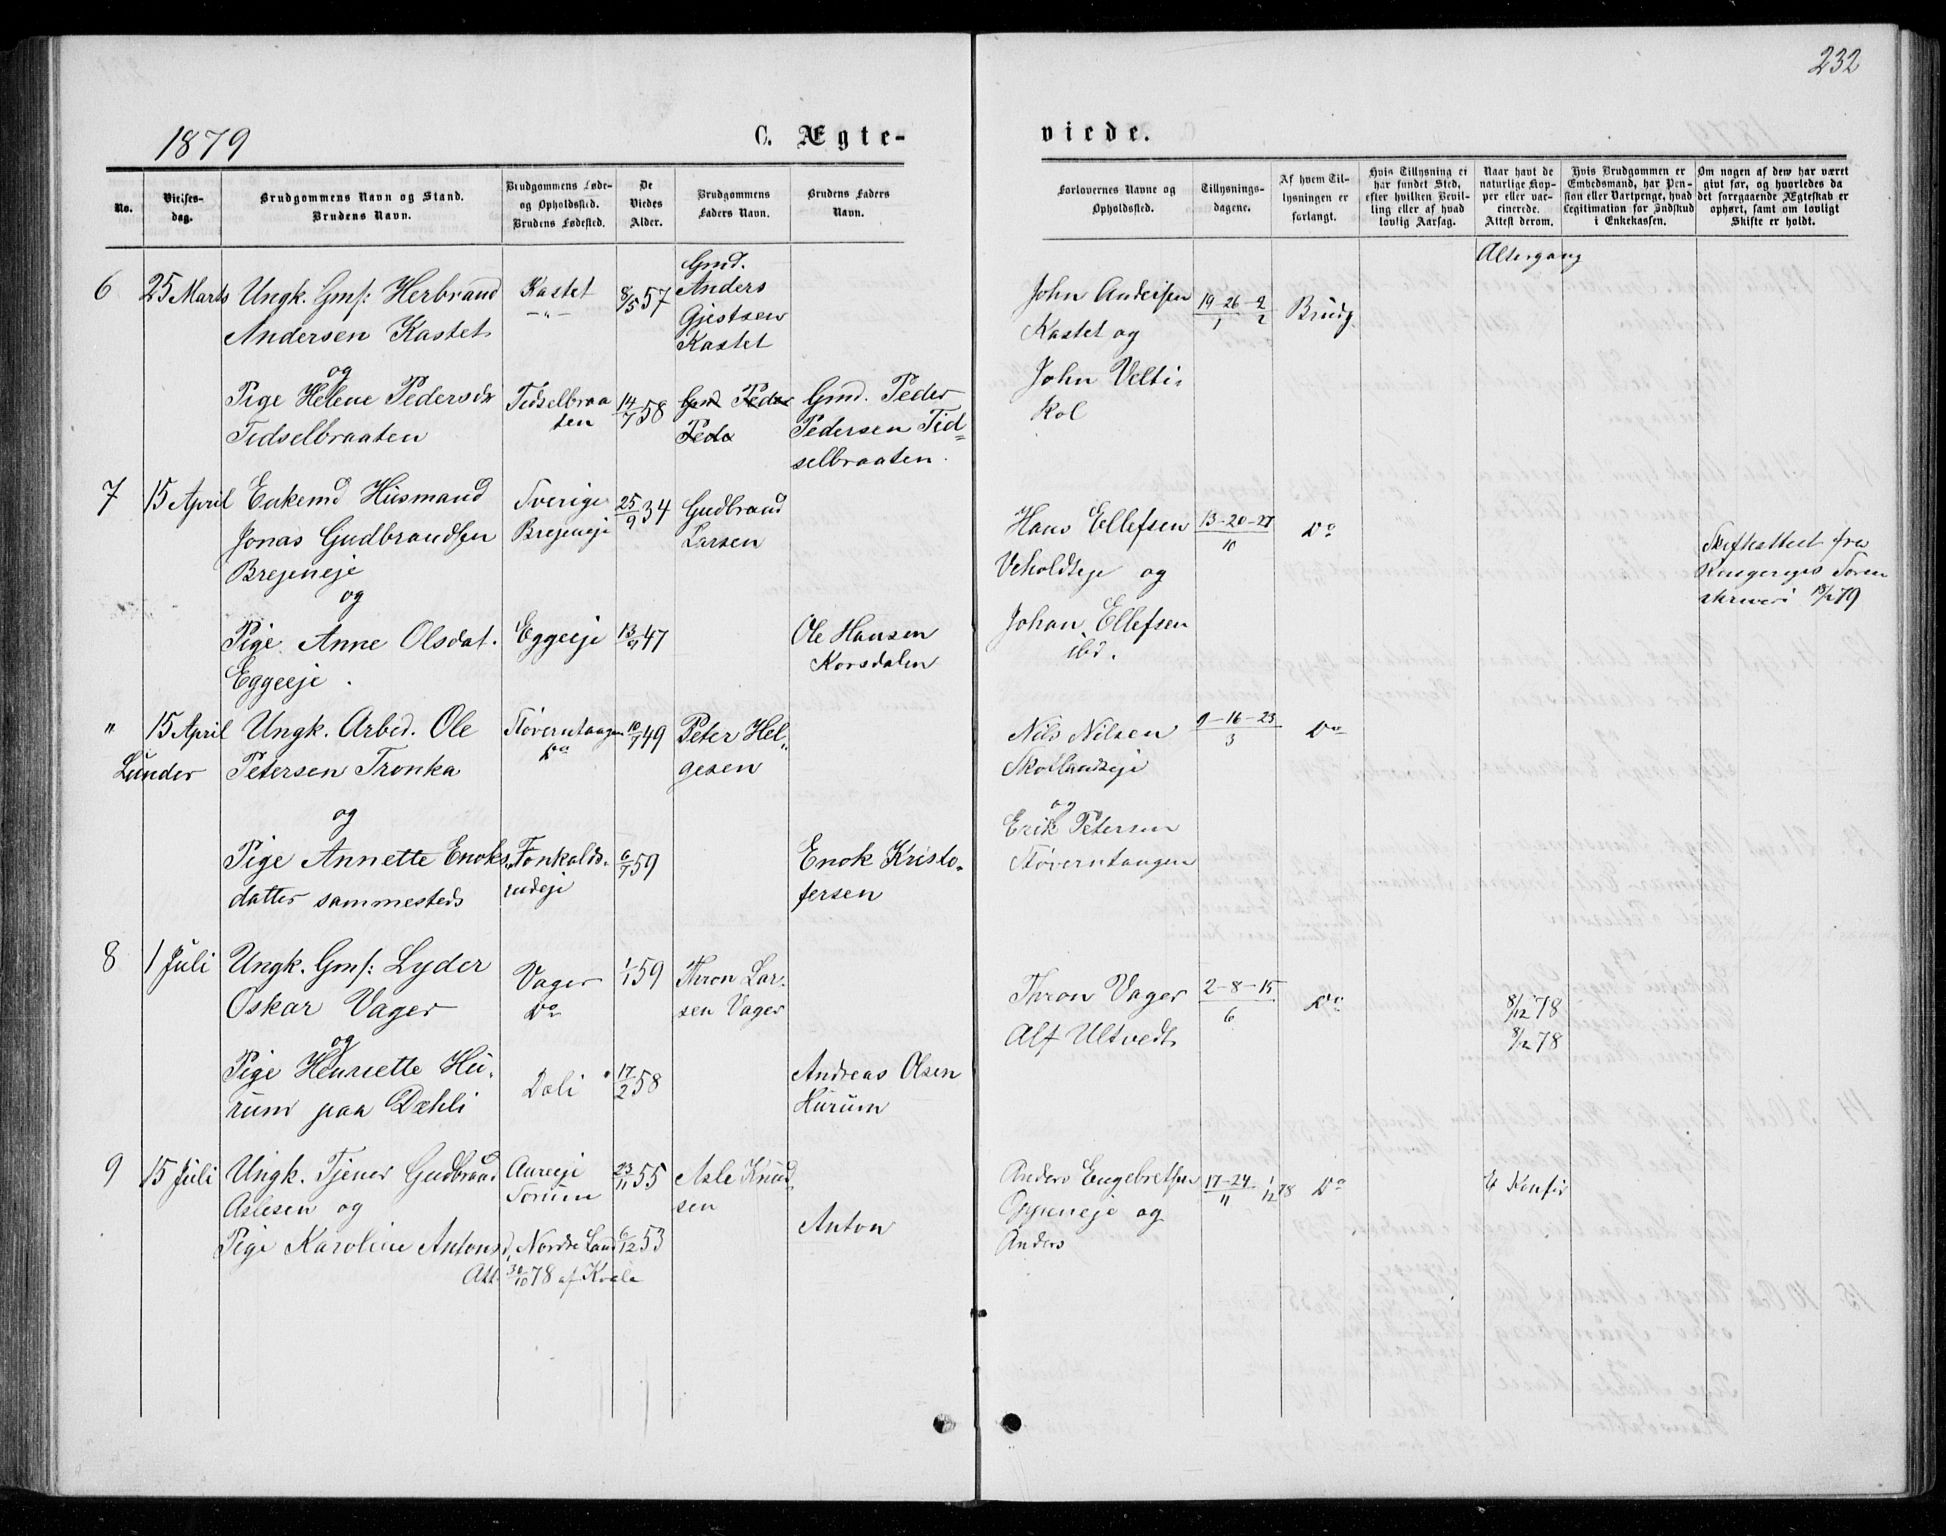 232
1879
C. Ægte-
viede.
No.
Vielses-
dag.
Brudgommens Navn og Stand.
Brudens Navn.
Brudgommens Føde-
og Opholdssted.
Brudens Fødested.
De
Viedes
Alder.
Brudgommens
Faders Navn.
Brudens Faders
Navn.
Forlovernes Navne og
Opholdssted.
Tillysnings-
dagene.
Af hvem Til-
lysningen er
forlangt.
Hvis Tillysning ei
har fundet Sted,
efter hvilken Bevil-
ling eller af hvad
lovlig Aarsag.
Naar havt de
naturlige Kop-
per eller vac-
cinerede.
Attest derom.
Hvis Brudgommen er
Embedsmand, har Pen-
sion eller Vartpenge, hvad
Legitimation for Indskud
i Enkekassen.
Om nogen af dem har været
gift før, og hvorledes da
det foregaaende Ægteskab er
ophørt, samt om lovligt
Skifte er holdt.
Altergang
6 25 Marts Ungk. Gmf: Herbrand Kastet 8/5 57 Gmd.
Andersen Kastet -"- Anders
Gjestsen
Kastet
John Andersen 19-26-2 Brudg.
Kastet og 1 2
John Velti-
kol
og
Pige Helene Pedersdr Tidselbraa 14/7 58 Gmd Peder Gmd. Peder
Tidselbraaten ten Pede Pedersen Tid-
selbraaten.
7 15 April Enkemd Husmand Sverige 25/9 34 Gudbrand
Jonas Gudbrandsen Brejeneje Larsen
Brejeneje
Hans Ellefsen 13-20-27 Do
Veholdseje og 10
Johan Ellefsen
ibd.
Skifteattest fra
79
og
Pige Anne Olsdat. Eggeeje 13/9 47 Ole Hansen
Eggeeje. Korsdalen
" 15 April Ungk. Arbed. Ole Støverntangen 10/7 49 Peter Hel-
Lunder Petersen Tronka Do gesen
Nils Nilsen 9-16-23 Do
3
og
Erik Petersen
Støverntangen
og
Pige Annette Enoks- 6/7 59 Enok Kristo-
datter sammesteds rudeje fersen
8 1 Juli Ungk. Gmf: Lyder Vager 1/1 59 Thron Lar-
Oskar Vager Do sen Vager
Thron Vager 2-8-15 Do 8/12 78
Alf Ultvedt 6 8/12 78
og
Pige Henriette Hu- Dæli 17/2 58 Andreas Olsen
rum paa Dæhli Hurum
9 15 Juli Ungk. Tjener Gudbrand Aureeje 23/11 55 Asle Knud-
Aslesen og Sørum sen
Pige Karoline Antonsd. Nordre Land 6/12 53 Anton
Att. 30/10 78 af
Anders Engebretsen 17-24 - 1 Do
Oppeneje og 11 12 78
Anders